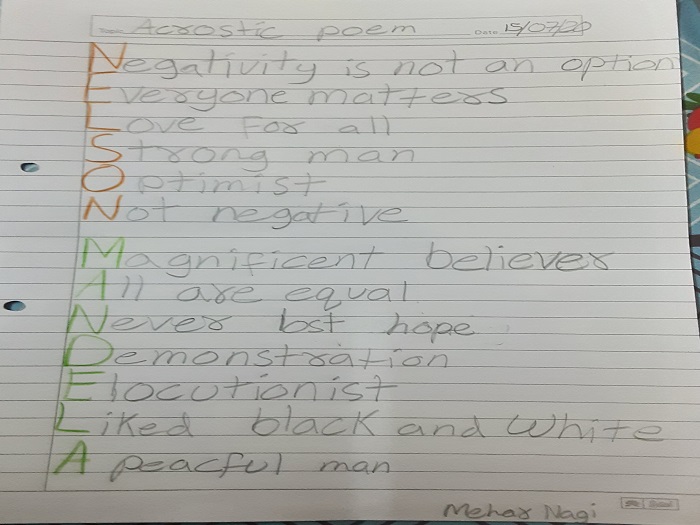 Acrostic poem Date 15/07/20
Negativity is not an option
Everyone matters
Love For all
Strong man
Optimist
Not negative
Magnificent believer
All are equal
Never lost hope
Demonstration
Elocutionist
Liked black and White
A peacful man
Mehar Nagi